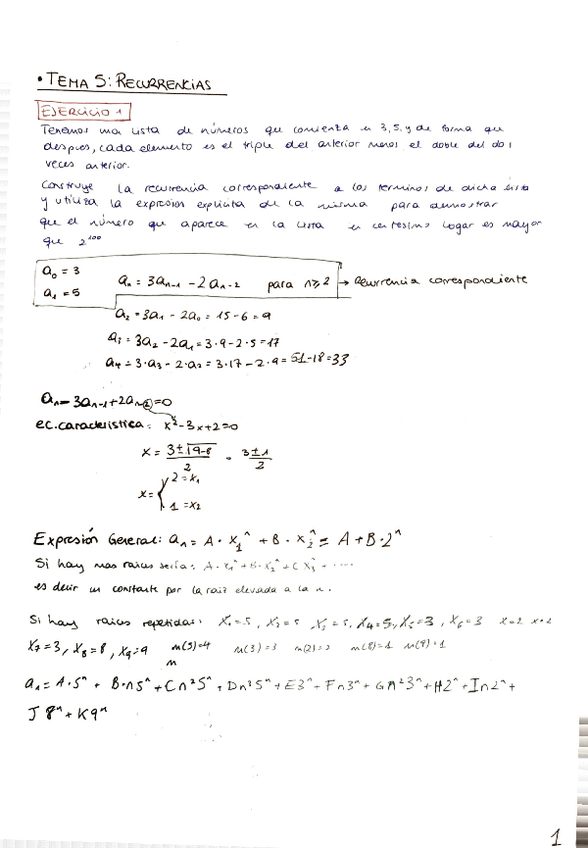 • TEMA 5: RECURRENCIAS
EJERCICIO 1
Tenemos una lista de números que comienza en 3, 5, y de forma que
despues, cada elemento es el triple del anterior menos el doble del dos
veces anterior.
Construye la recurrencia correspondiente a los terminos de dicha lista
y utiliza la expresión explicita de la misma para demostrar
que el número que aparece en la lista en centesimo lugar es mayor
que 2^100
a₀ = 3
a₁ = 5
aₙ = 3aₙ₋₁ - 2aₙ₋₂ para n≥2 → Recurrencia correspondiente
a₂ = 3a₁ - 2a₀ = 15 - 6 = 9
a₃ = 3a₂ - 2a₁ = 3·9 - 2·5 = 17
a₄ = 3·a₃ - 2·a₂ = 3·17 - 2·9 = 51-18 = 33
aₙ - 3aₙ₋₁ + 2aₙ₋₂ = 0
ec. caracteristica: x² - 3x + 2 = 0
x = (3 ± √(9-8))/2 = (3 ± 1)/2
x = { 2 = x₁
1 = x₂
Expresión General: aₙ = A · x₁ⁿ + B · x₂ⁿ = A + B·2ⁿ
Si hay mas raices sería: A·x₁ⁿ + B·x₂ⁿ + C x₃ⁿ + ....
es decir un constante por la raiz elevada a la n.
Si hay raices repetidas: x₁=5, x₂=5, x₃=5, x₄=5, x₅=3, x₆=3 x=2 x=2
x₇=3, x₈=8, x₉=9 m(5)=4 m(3)=3 m(2)=2 m(8)=1 m(9)=1
m
aₙ = A·5ⁿ + B·n5ⁿ + Cn²5ⁿ + Dn³5ⁿ + E3ⁿ + Fn3ⁿ + Gn²3ⁿ + H2ⁿ + In2ⁿ +
J8ⁿ + K9ⁿ
1